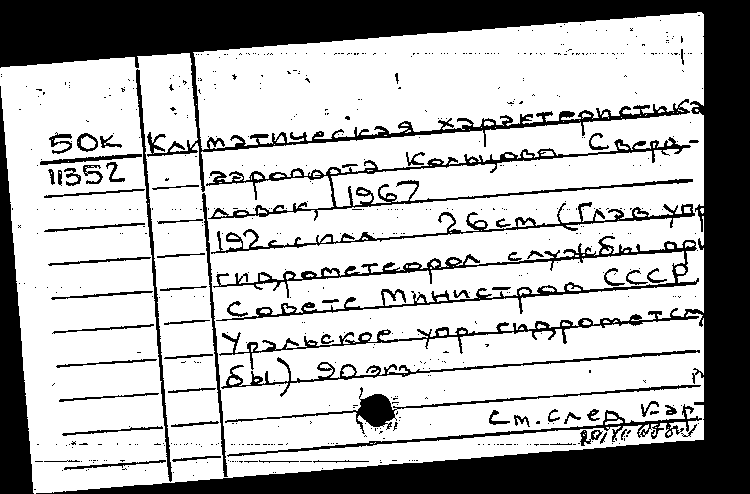 50К Климатическая характеристика
11352 аэропорта Кольцово. Сверд-
ловск, 1967
192 с. с илл. 26 см. (Глав упр
гидрометеорол службы при
Совете Министров СССР.
Уральское упр. гидрометсл
бы). 90 экз.
См. след. кар